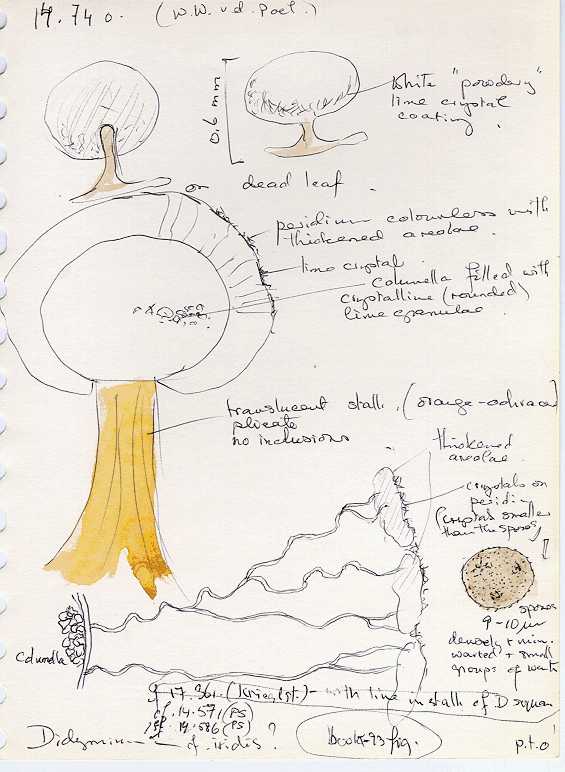 14.740. (W.W. v.d. Poel.)
0.6 mm
white "powdery"
lime crystal
coating.
on dead leaf.
peridium colourless with
thickened areolae.
lime crystal
columella filled with
crystalline (rounded)
lime granulae.
translucent stalk, (orange-ochracea)
plicate
no inclusions
thickened
areolae.
crystals on
peridium
(crystals smaller
than the spores)
spores
9-10 µm
densely + min.
warted + small
groups of warts
Columella
17.361. with lime in stalk of D
cf. 14.571 (PS)
14.586 (PS)
Didymium cf iridis?
p.t.o